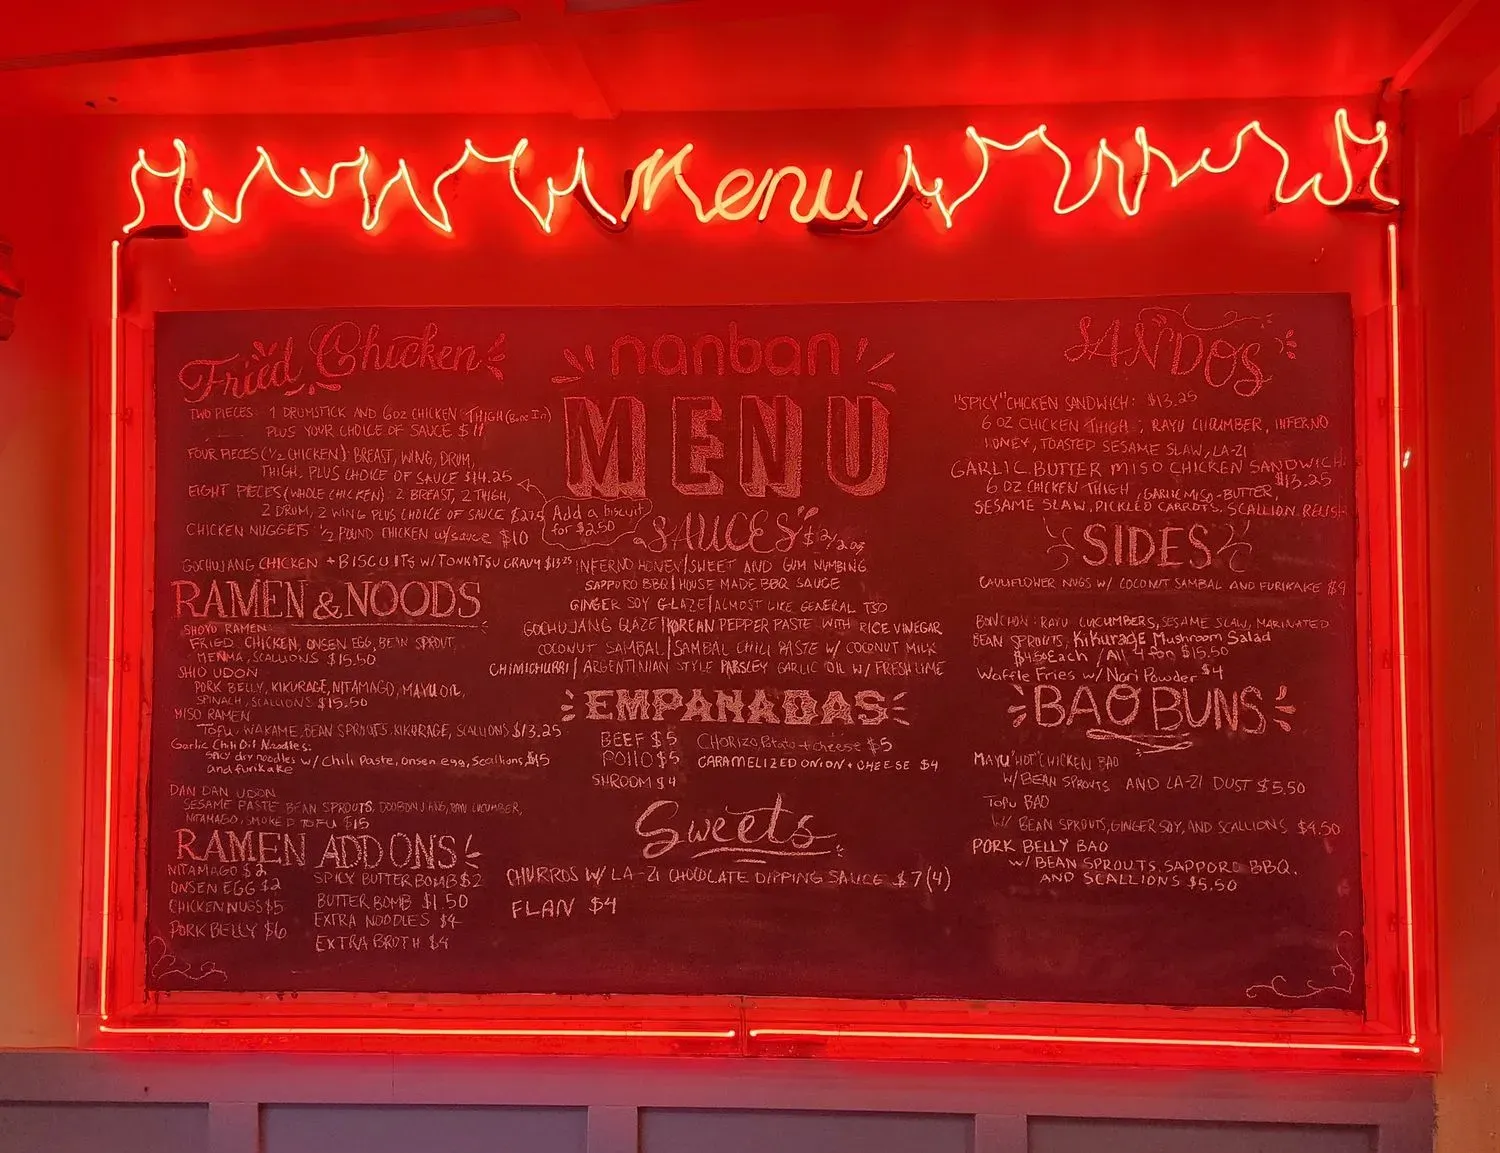 Menu
Fried Chicken
TWO PIECES: 1 DRUMSTICK AND 6OZ CHICKEN THIGH (Bone In)
PLUS YOUR CHOICE OF SAUCE $11
FOUR PIECES (1/2 CHICKEN): BREAST, WING, DRUM,
THIGH, PLUS CHOICE OF SAUCE $14.25
EIGHT PIECES (WHOLE CHICKEN): 2 BREAST, 2 THIGH,
2 DRUM, 2 WING PLUS CHOICE OF SAUCE $27.5
Add a biscuit
for $2.50
CHICKEN NUGGETS 1/2 POUND CHICKEN w/sauce $10
GOCHUJANG CHICKEN + BISCUITS W/TONKATSU GRAVY $13.25
RAMEN & NOODS
SHOYO RAMEN:
FRIED CHICKEN, ONSEN EGG, BEAN SPROUT,
MENMA, SCALLIONS $15.50
SHIO UDON
PORK BELLY, KIKURAGE, NITAMAGO, MAYU OIL,
SPINACH, SCALLIONS $15.50
MISO RAMEN
TOFU, WAKAME, BEAN SPROUTS, KIKURAGE, SCALLIONS $13.25
Garlic Chili Oil Noodles:
spicy dry noodles w/ Chili Paste, onsen egg, Scallions, $15
and furikake
DAN DAN UDON
SESAME PASTE BEAN SPROUTS, DOOBONJIANG, RAW CUCUMBER,
NITAMAGO, SMOKED TOFU $15
RAMEN ADD ONS
NITAMAGO $2
ONSEN EGG $2
CHICKEN NUGS $5
PORK BELLY $6
SPICY BUTTER BOMB $2
BUTTER BOMB $1.50
EXTRA NOODLES $4
EXTRA BROTH $4
nanban
MENU
SAUCES $1.2/2oz
INFERNO HONEY/SWEET AND GUM NUMBING
SAPPORO BBQ/HOUSE MADE BBQ SAUCE
GINGER SOY GLAZE/ALMOST LIKE GENERAL TSO
GOCHUJANG GLAZE/KOREAN PEPPER PASTE WITH RICE VINEGAR
COCONUT SAMBAL/SAMBAL CHILI PASTE W/ COCONUT MILK
CHIMICHURRI/ARGENTINIAN STYLE PARSLEY GARLIC OIL W/ FRESH LIME
EMPANADAS
BEEF $5
POllO $5
SHROOM $4
CHORIZO, Potato + cheese $5
CARAMELIZED ONION + CHEESE $4
Sweets
CHURROS W/ LA-ZI CHOCOLATE DIPPING SAUCE $7 (4)
FLAN $4
SANDOS
"SPICY" CHICKEN SANDWICH: $13.25
6 OZ CHICKEN THIGH, RAYU CUCUMBER, INFERNO
HONEY, TOASTED SESAME SLAW, LA-ZI
GARLIC BUTTER MISO CHICKEN SANDWICH
$13.25
6 OZ CHICKEN THIGH, GARLIC MISO-BUTTER,
SESAME SLAW, PICKLED CARROTS, SCALLION RELISH
SIDES
CAULIFLOWER NUGS W/ COCONUT SAMBAL AND FURIKAKE $9
BONCHON: RAYU CUCUMBERS, SESAME SLAW, MARINATED
BEAN SPROUTS, KiKuraGE Mushroom Salad
$4.50 Each / All 4 for $15.50
Waffle Fries w/ Nori Powder $4
BAO BUNS
MAYU "HOT" CHICKEN BAO
W/ BEAN SPROUTS AND LA-ZI DUST $5.50
TOFU BAO
W/ BEAN SPROUTS, GINGER SOY, AND SCALLIONS $4.50
PORK BELLY BAO
W/ BEAN SPROUTS, SAPPORO BBQ,
AND SCALLIONS $5.50